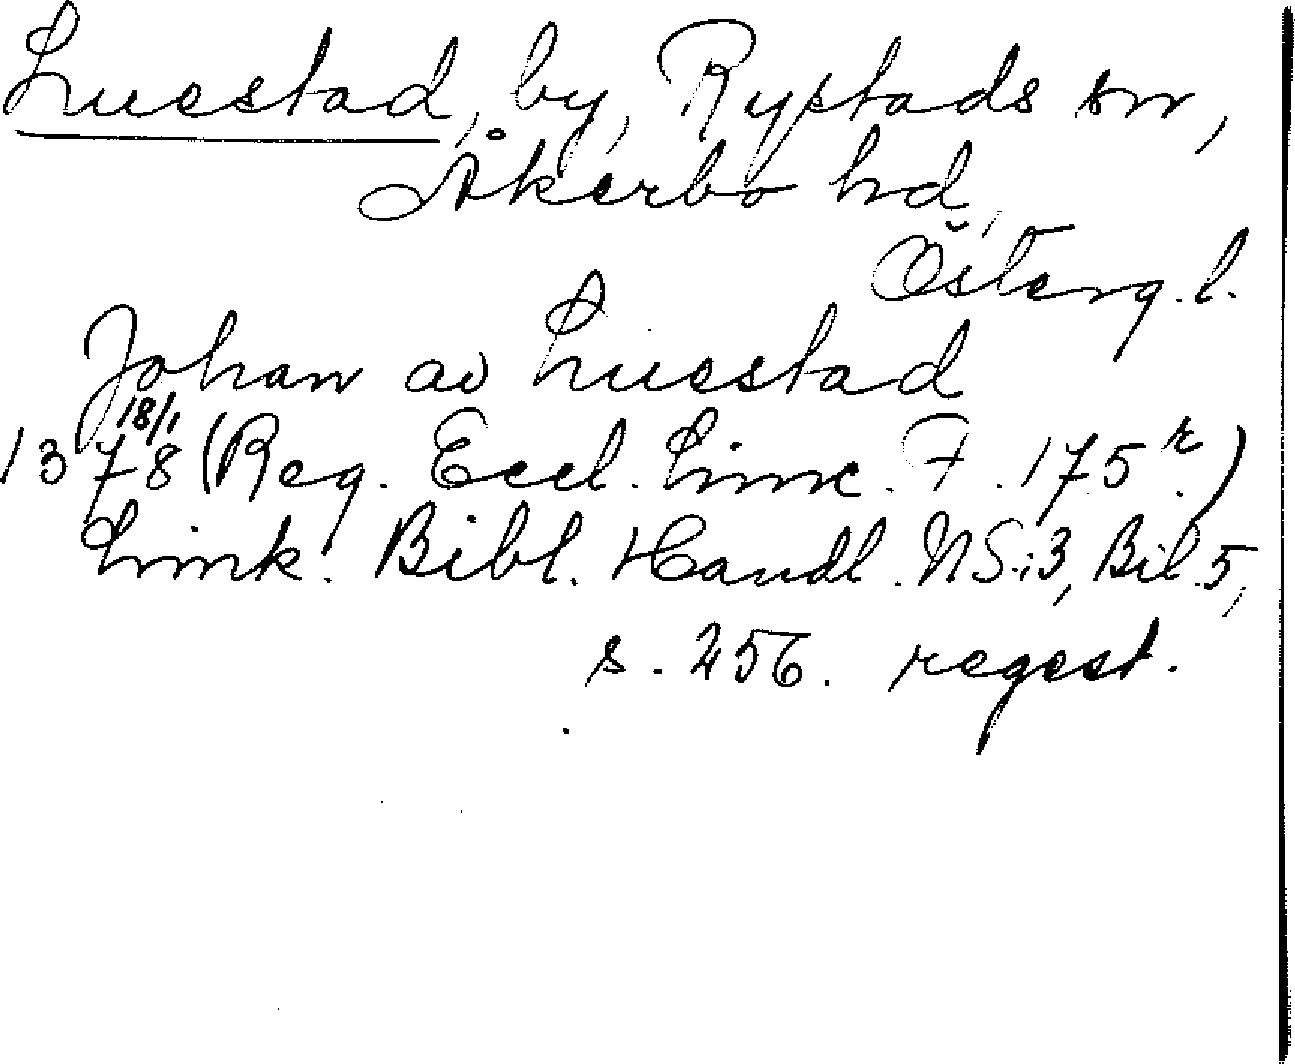 Luestad, by, Rystads sn,
Åkerbo hd,
Östergl.
Johan av Luestad
18/1
1378 (Reg. Eccl. Linc. F. 175 r.)
Link. Bibl. Handl. NS:3, Bil. 5,
s. 256. regest.